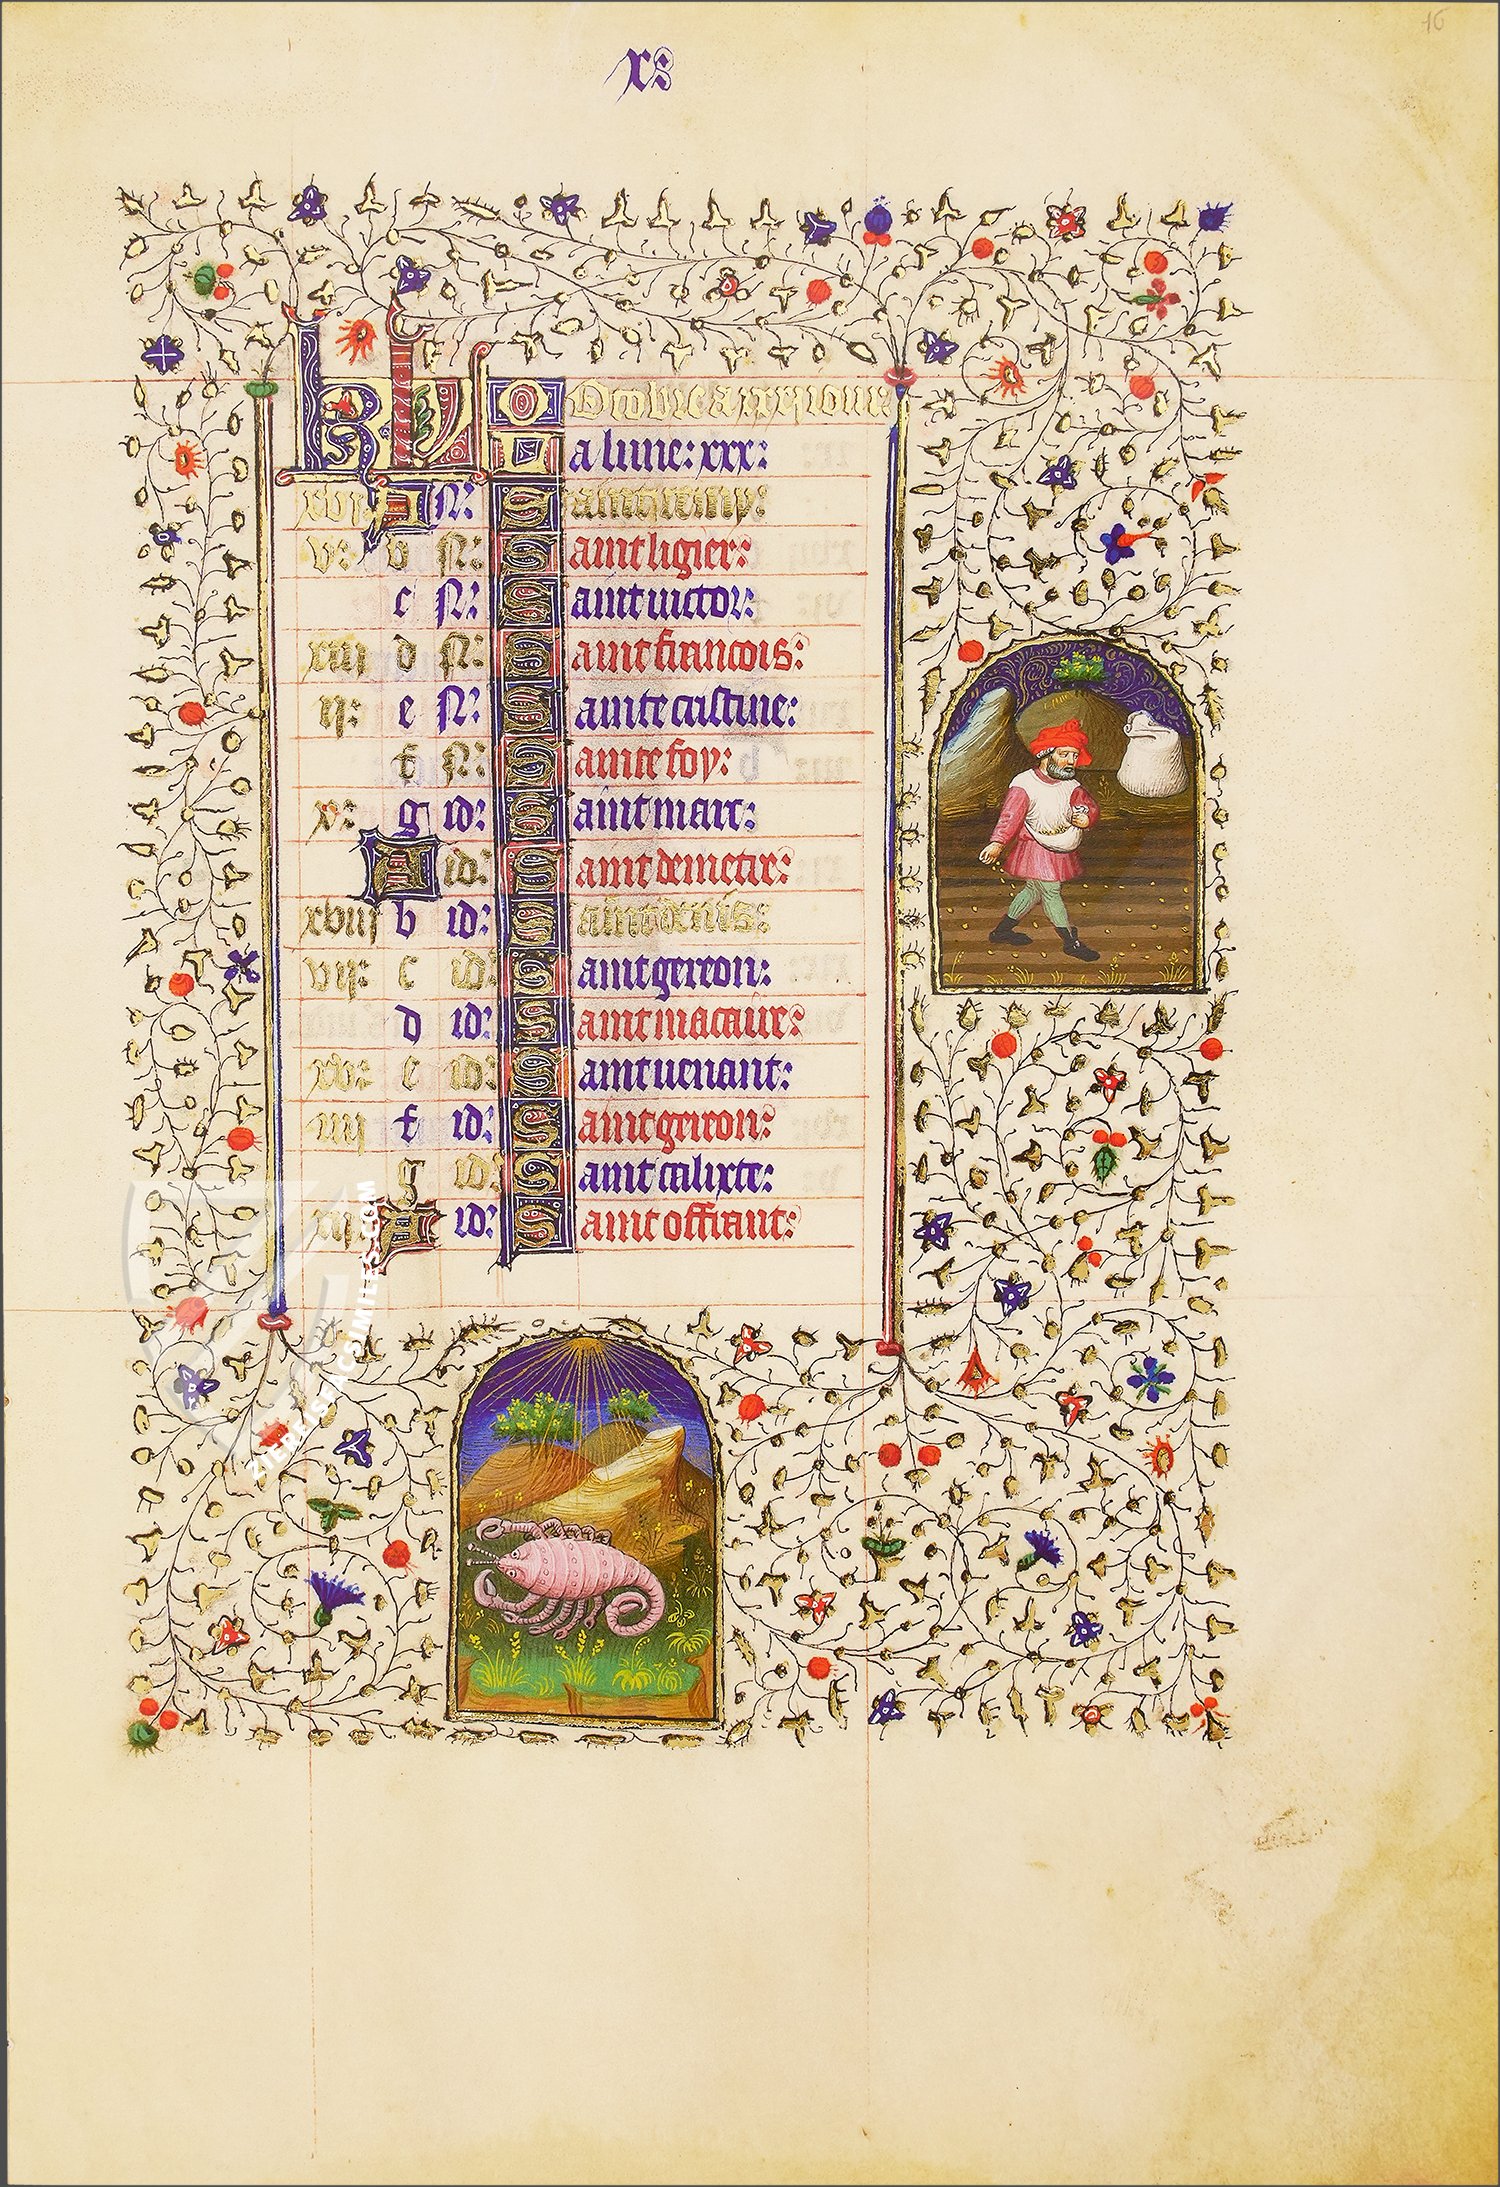 16
x:
KL Octobre a xxxi iour:
a lune: xxx:
xvi A N: Saint remy:
v: b N: Saint ligier:
c N: Saint victor:
xiii d N: Saint francois:
ii: e N: Sainte cristine:
f N: Sainte foy:
x: g id: Saint marc:
A id: Saint demetre:
xviii b id: Saint denis:
vii: c id: Saint gereon:
d id: Saint macaire:
xv: e id: Saint venant:
iiii f id: Saint gereon:
g id: Saint calixte:
xii A id: Saint offrant:
ZIEREISFACSIMILES.COM